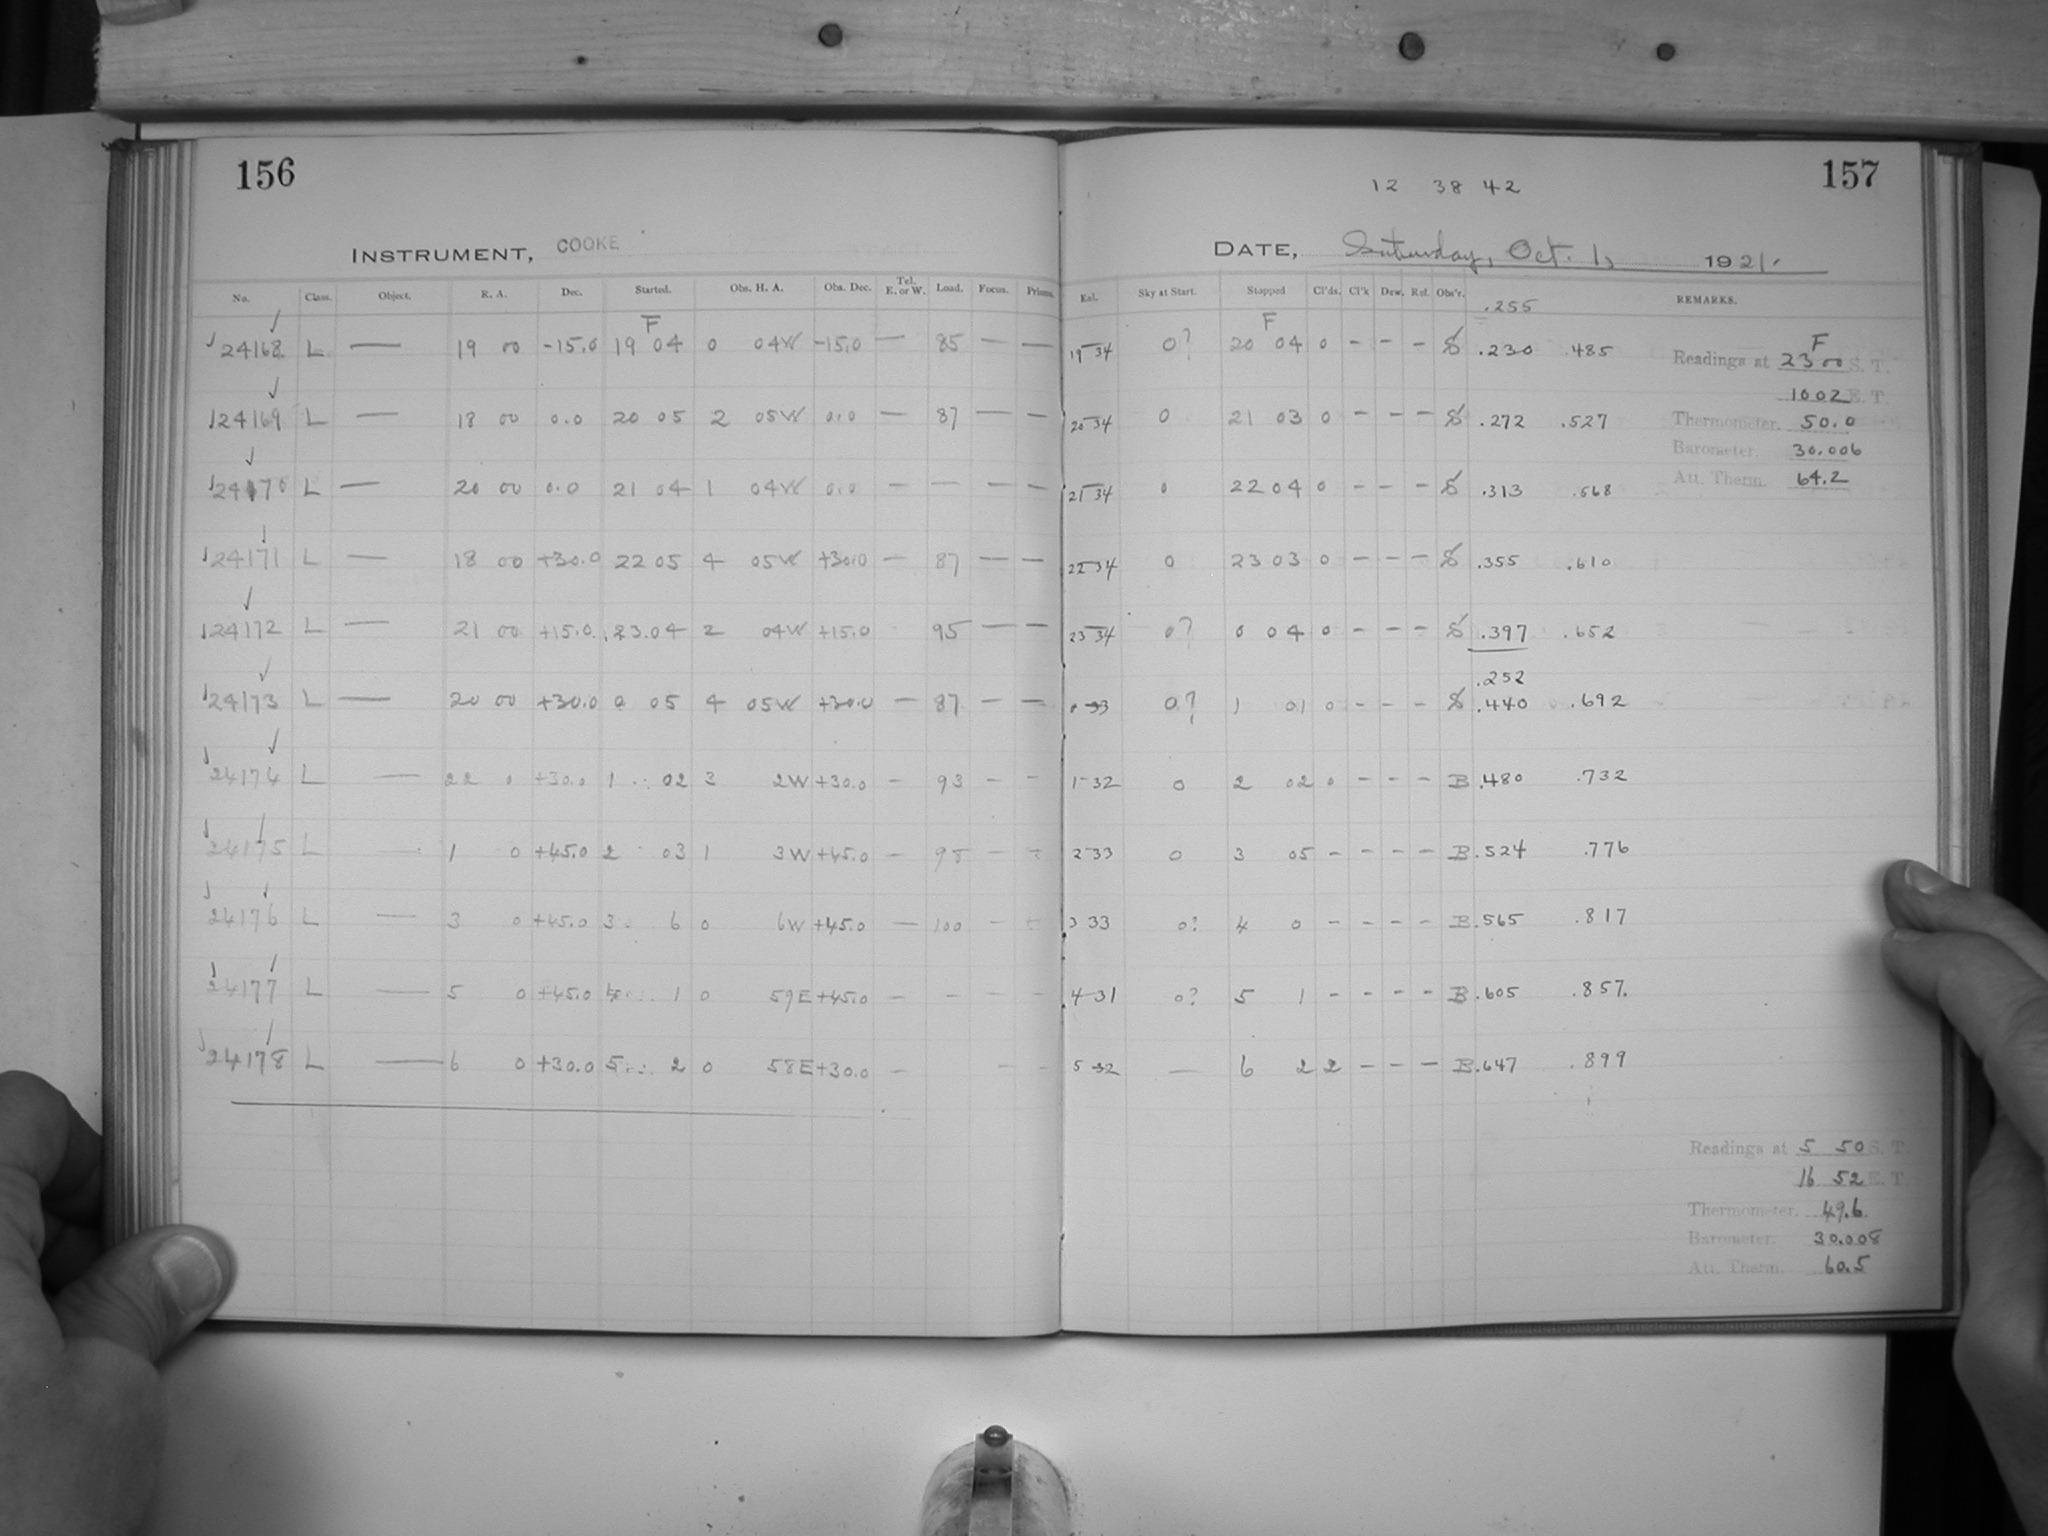 156
INSTRUMENT, COOKE
No. Class. Object. R. A. Dec. Started. Obs. H. A. Obs. Dec. Tel. E. or W. Load. Focus. Prisms.
F
24168 L — 19 00 -15.0 19 04 0 04W -15.0 — 85 — —
24169 L — 18 00 0.0 20 05 2 05W 0.0 — 87 — —
24170 L — 20 00 0.0 21 04 1 04W 0.0 — — — —
24171 L — 18 00 +30.0 22 05 4 05W +30.0 — 87 — —
24172 L — 21 00 +15.0 23.04 2 04W +15.0 95 — —
24173 L — 20 00 +30.0 0 05 4 05W +30.0 — 87 — —
24174 L — 22 0 +30.0 1 02 3 2W +30.0 - 93 - -
24175 L — 1 0 +45.0 2 03 1 3W +45.0 - 95 - -
24176 L — 3 0 +45.0 3 6 0 6W +45.0 — 100 - -
24177 L — 5 0 +45.0 4 1 0 59E +45.0 - - - -
24178 L — 6 0 +30.0 5 2 0 58E +30.0 - - -
157
12 38 42
DATE, Saturday, Oct. 1, 1921.
Exl. Sky at Start. Stopped Cl'ds. Cl'k Dew. Ref. Obs'r. .255 REMARKS.
F
19 34 0? 20 04 0 - - - S .230 .485
20 34 0 21 03 0 - - - S .272 .527
21 34 0 22 04 0 - - - S .313 .568
22 34 0 23 03 0 - - - S .355 .610
23 34 0? 0 04 0 - - - S .397 .652
.252
0 33 0? 1 01 0 - - - S .440 .692
1 32 0 2 02 0 - - - B .480 .732
2 33 0 3 05 - - - - B .524 .776
3 33 0? 4 0 - - - - B .565 .817
4 31 0? 5 1 - - - - B .605 .857.
5 32 — 6 2 2 - - - B .647 .899
F
Readings at 23 00 S. T.
10 02 E. T.
Thermometer. 50.0
Barometer. 30.006
Att. Therm. 64.2
Readings at 5 50 S. T.
16 52 E. T.
Thermometer. 49.6
Barometer. 30.008
Att. Therm. 60.5